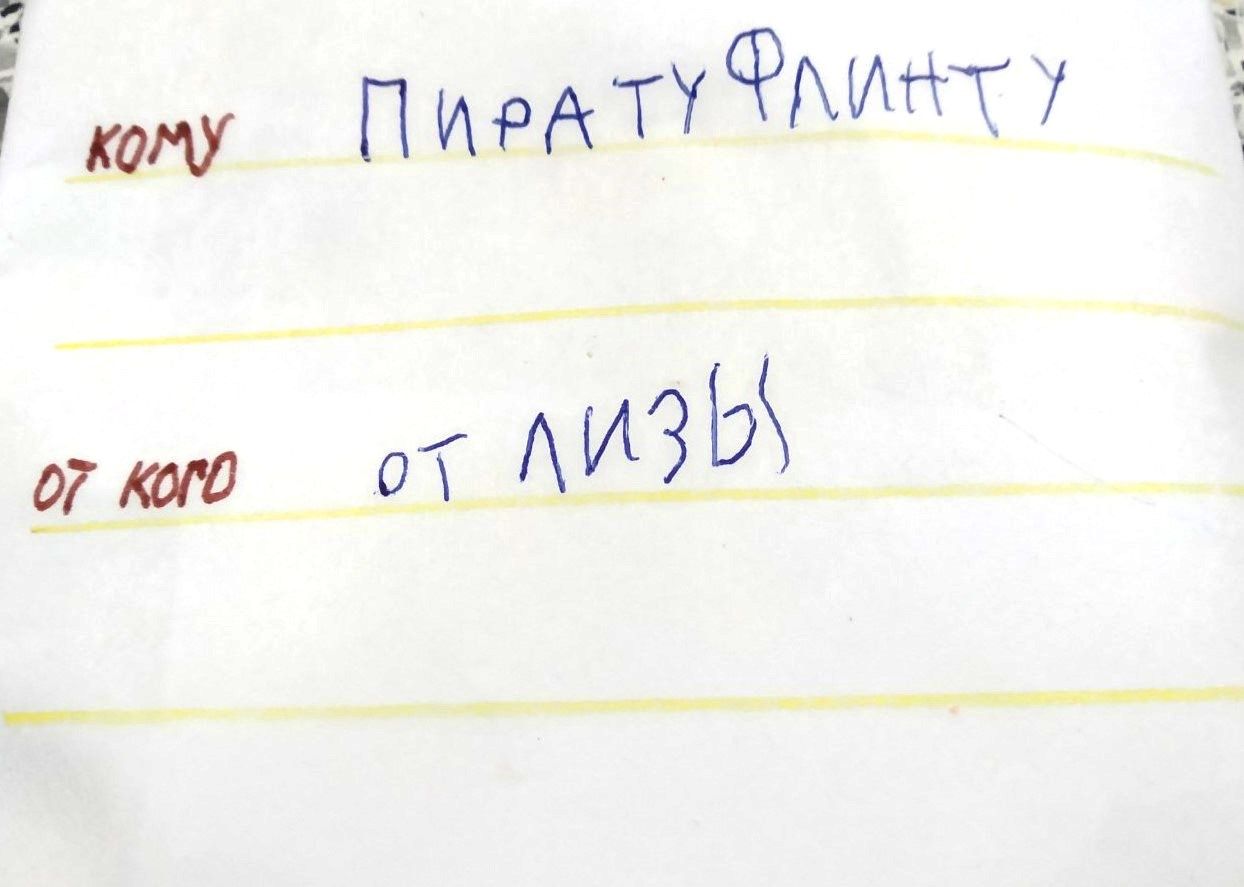 КОМУ ПИРАТУ ФЛИНТУ
ОТ КОГО ОТ ЛИЗЫ